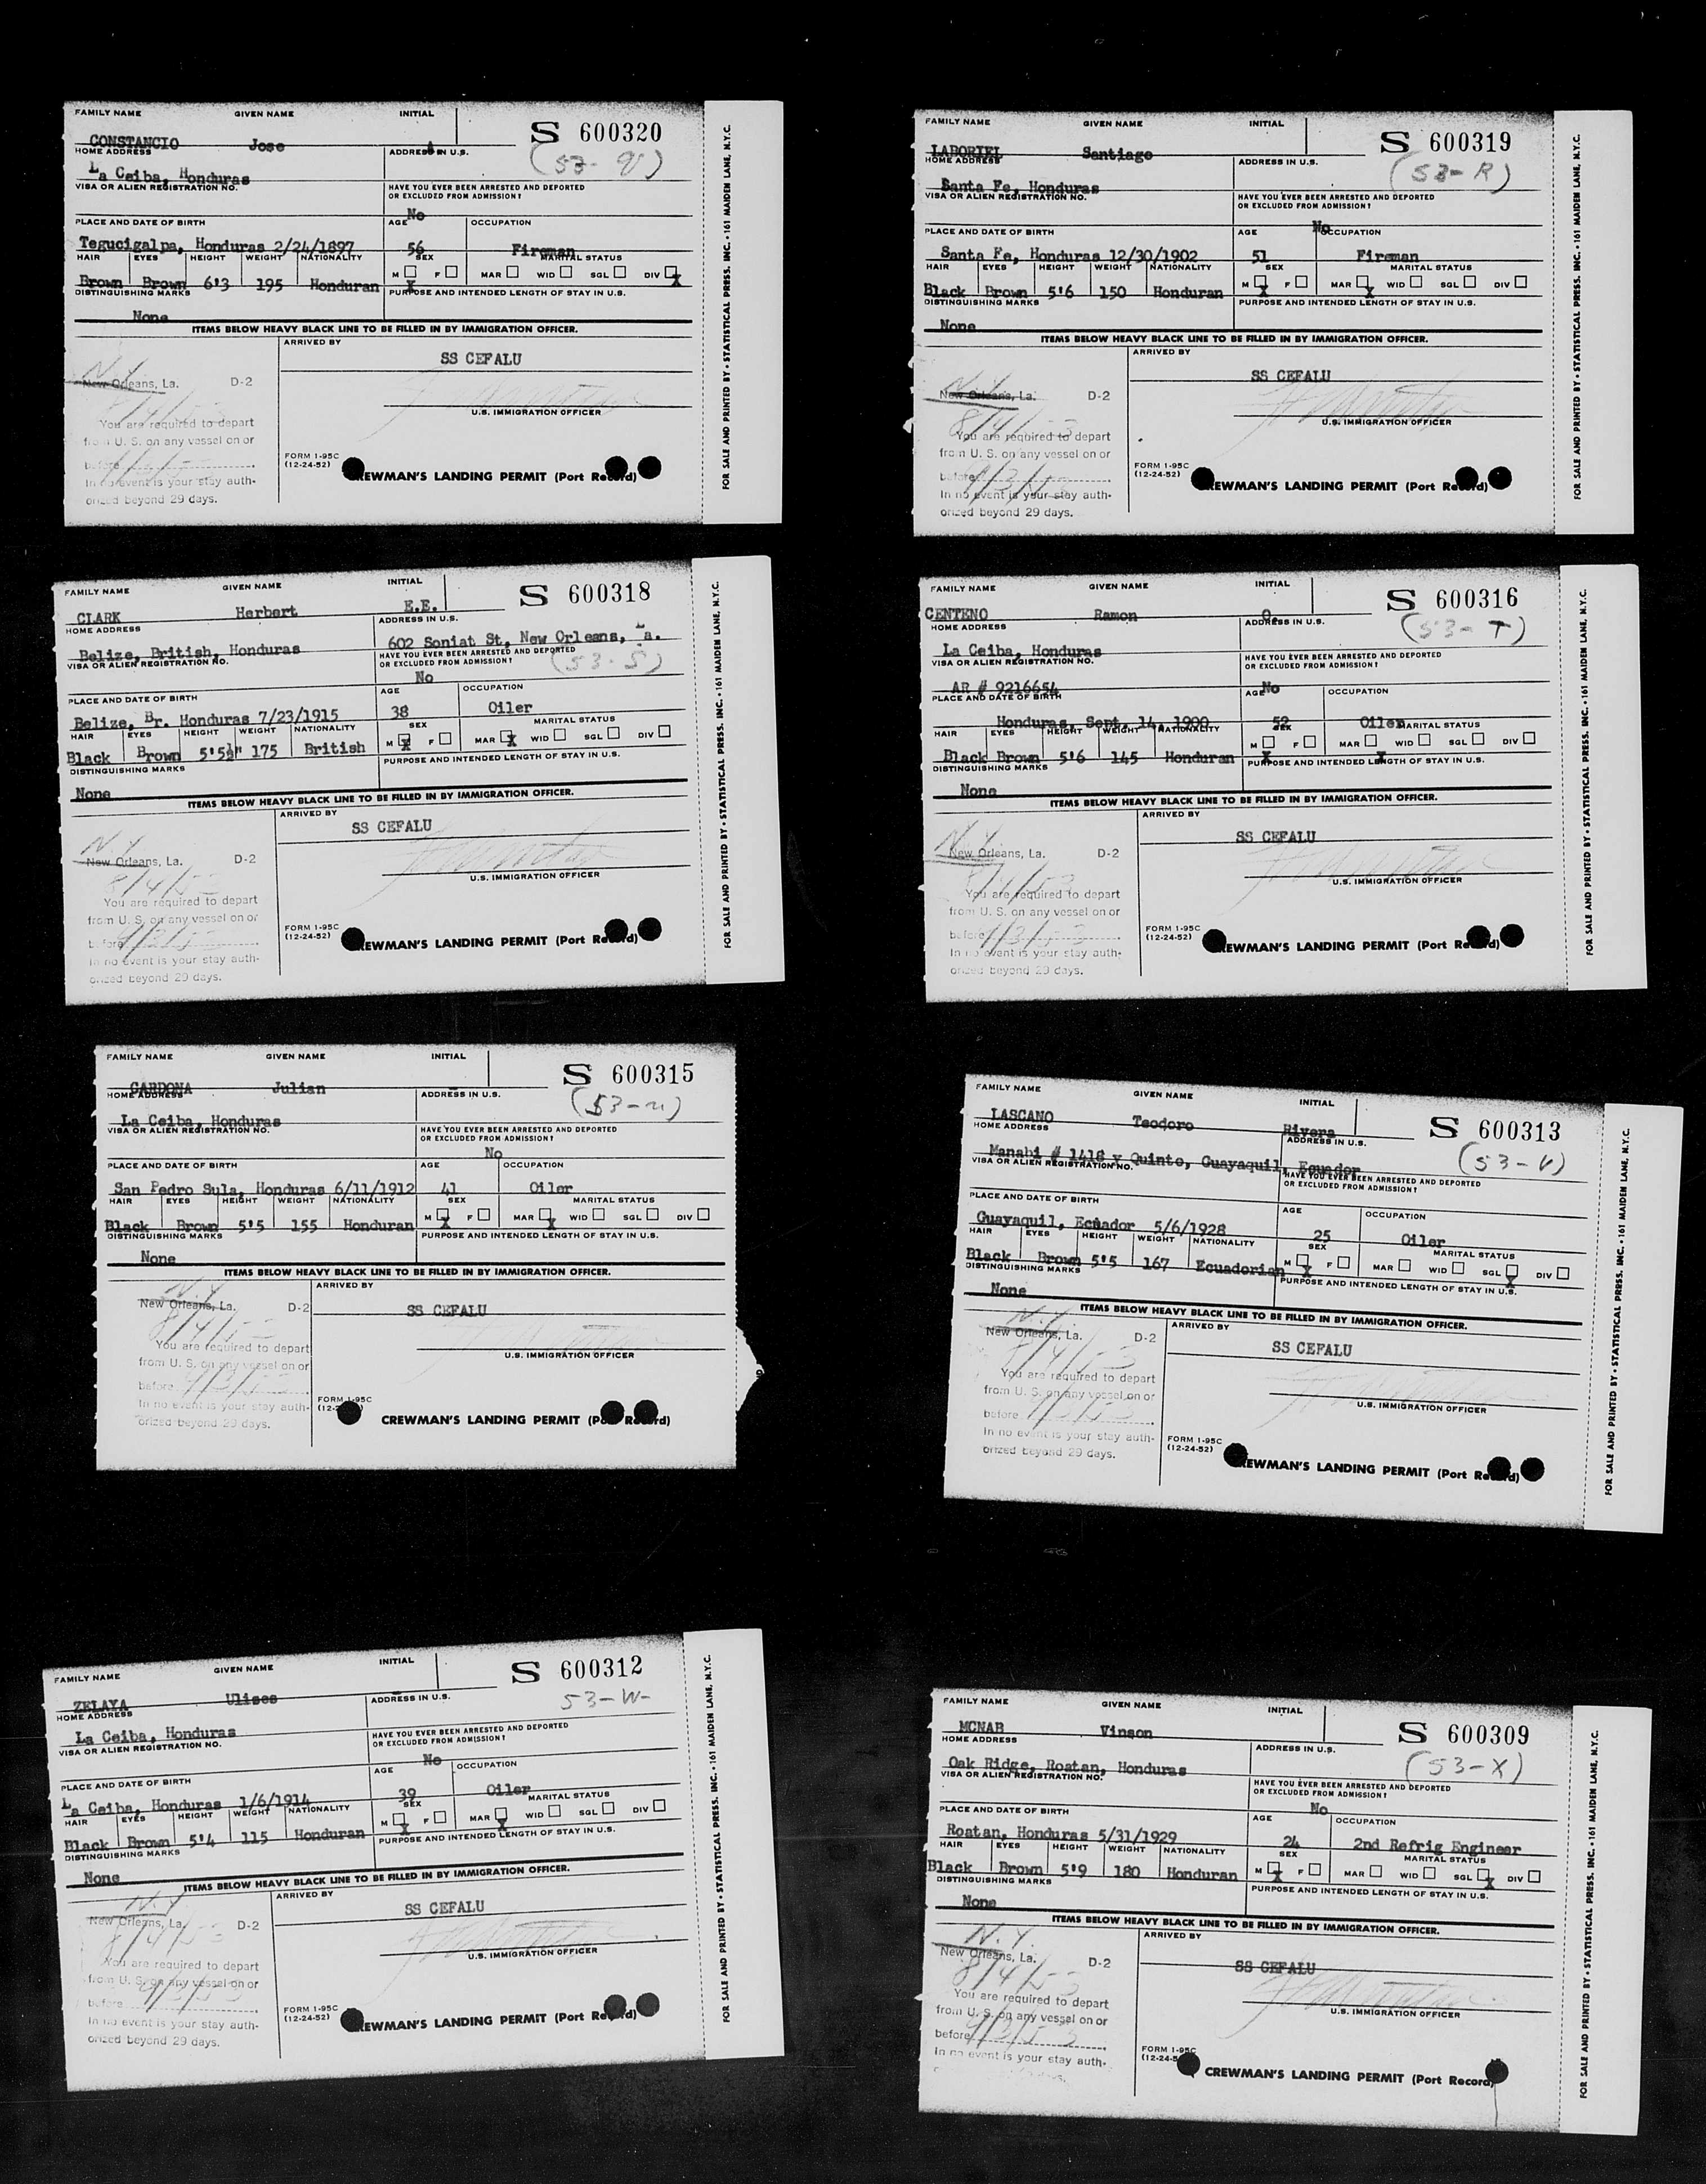 FAMILY NAME GIVEN NAME INITIAL
S 600320
CONSTANCIO Jose
HOME ADDRESS ADDRESS IN U.S.
La Ceiba, Honduras
VISA OR ALIEN REGISTRATION NO. HAVE YOU EVER BEEN ARRESTED AND DEPORTED
OR EXCLUDED FROM ADMISSION?
No
PLACE AND DATE OF BIRTH AGE OCCUPATION
Tegucigalpa, Honduras 2/24/1897 56 Fireman
HAIR EYES HEIGHT WEIGHT NATIONALITY SEX MARITAL STATUS
M F MAR WID SGL DIV X
Brown Brown 6'3 195 Honduran X
DISTINGUISHING MARKS PURPOSE AND INTENDED LENGTH OF STAY IN U.S.
None
ITEMS BELOW HEAVY BLACK LINE TO BE FILLED IN BY IMMIGRATION OFFICER.
ARRIVED BY
SS CEFALU
N.Y.
New Orleans, La. D-2
8/4/53
U.S. IMMIGRATION OFFICER
You are required to depart
from U. S. on any vessel on or
before
In no event is your stay auth-
orized beyond 29 days.
FORM I-95C
(12-24-52)
CREWMAN'S LANDING PERMIT (Port Record)
FOR SALE AND PRINTED BY • STATISTICAL PRESS, INC. • 161 MAIDEN LANE, N.Y.C.
FAMILY NAME GIVEN NAME INITIAL
S 600319
(53-R)
LABORIEL Santiago
HOME ADDRESS ADDRESS IN U.S.
Santa Fe, Honduras
VISA OR ALIEN REGISTRATION NO. HAVE YOU EVER BEEN ARRESTED AND DEPORTED
OR EXCLUDED FROM ADMISSION?
No
PLACE AND DATE OF BIRTH AGE OCCUPATION
Santa Fe, Honduras 12/30/1902 51 Fireman
HAIR EYES HEIGHT WEIGHT NATIONALITY SEX MARITAL STATUS
M X F MAR X WID SGL DIV
Black Brown 5'6 150 Honduran
DISTINGUISHING MARKS PURPOSE AND INTENDED LENGTH OF STAY IN U.S.
None
ITEMS BELOW HEAVY BLACK LINE TO BE FILLED IN BY IMMIGRATION OFFICER.
ARRIVED BY
SS CEFALU
N.Y.
New Orleans, La. D-2
8/4/53
U.S. IMMIGRATION OFFICER
You are required to depart
from U. S. on any vessel on or
before 9/3/53
In no event is your stay auth-
orized beyond 29 days.
FORM I-95C
(12-24-52)
CREWMAN'S LANDING PERMIT (Port Record)
FOR SALE AND PRINTED BY • STATISTICAL PRESS, INC. • 161 MAIDEN LANE, N.Y.C.
FAMILY NAME GIVEN NAME INITIAL
S 600318
CLARK Herbert E.E.
HOME ADDRESS ADDRESS IN U.S.
Belize, British, Honduras 602 Soniat St, New Orleans, La.
VISA OR ALIEN REGISTRATION NO. HAVE YOU EVER BEEN ARRESTED AND DEPORTED
OR EXCLUDED FROM ADMISSION? (53-S)
No
PLACE AND DATE OF BIRTH AGE OCCUPATION
Belize, Br. Honduras 7/23/1915 38 Oiler
HAIR EYES HEIGHT WEIGHT NATIONALITY SEX MARITAL STATUS
M X F MAR X WID SGL DIV
Black Brown 5'5½" 175 British
DISTINGUISHING MARKS PURPOSE AND INTENDED LENGTH OF STAY IN U.S.
None
ITEMS BELOW HEAVY BLACK LINE TO BE FILLED IN BY IMMIGRATION OFFICER.
ARRIVED BY
SS CEFALU
N.Y.
New Orleans, La. D-2
8/4/53
U.S. IMMIGRATION OFFICER
You are required to depart
from U. S. on any vessel on or
before 9/3/53
In no event is your stay auth-
orized beyond 29 days.
FORM I-95C
(12-24-52)
CREWMAN'S LANDING PERMIT (Port Record)
FOR SALE AND PRINTED BY • STATISTICAL PRESS, INC. • 161 MAIDEN LANE, N.Y.C.
FAMILY NAME GIVEN NAME INITIAL
S 600316
(53-T)
CENTENO Ramon O.
HOME ADDRESS ADDRESS IN U.S.
La Ceiba, Honduras
VISA OR ALIEN REGISTRATION NO. HAVE YOU EVER BEEN ARRESTED AND DEPORTED
OR EXCLUDED FROM ADMISSION?
AR # 9216654 No
PLACE AND DATE OF BIRTH AGE OCCUPATION
Honduras, Sept. 14, 1900 52 Oiler
HAIR EYES HEIGHT WEIGHT NATIONALITY SEX MARITAL STATUS
M F MAR WID SGL DIV
Black Brown 5'6 145 Honduran X X
DISTINGUISHING MARKS PURPOSE AND INTENDED LENGTH OF STAY IN U.S.
None
ITEMS BELOW HEAVY BLACK LINE TO BE FILLED IN BY IMMIGRATION OFFICER.
ARRIVED BY
SS CEFALU
N.Y.
New Orleans, La. D-2
8/4/53
U.S. IMMIGRATION OFFICER
You are required to depart
from U. S. on any vessel on or
before 9/3/53
In no event is your stay auth-
orized beyond 29 days.
FORM I-95C
(12-24-52)
CREWMAN'S LANDING PERMIT (Port Record)
FOR SALE AND PRINTED BY • STATISTICAL PRESS, INC. • 161 MAIDEN LANE, N.Y.C.
FAMILY NAME GIVEN NAME INITIAL
S 600315
CARDONA Julian
HOME ADDRESS ADDRESS IN U.S.
(53-U)
La Ceiba, Honduras
VISA OR ALIEN REGISTRATION NO. HAVE YOU EVER BEEN ARRESTED AND DEPORTED
OR EXCLUDED FROM ADMISSION?
No
PLACE AND DATE OF BIRTH AGE OCCUPATION
San Pedro Sula, Honduras 6/11/1912 41 Oiler
HAIR EYES HEIGHT WEIGHT NATIONALITY SEX MARITAL STATUS
M X F MAR X WID SGL DIV
Black Brown 5'5 155 Honduran
DISTINGUISHING MARKS PURPOSE AND INTENDED LENGTH OF STAY IN U.S.
None
ITEMS BELOW HEAVY BLACK LINE TO BE FILLED IN BY IMMIGRATION OFFICER.
ARRIVED BY
N.Y.
New Orleans, La. D-2
SS CEFALU
8/4/53
You are required to depart
U.S. IMMIGRATION OFFICER
from U. S. on any vessel on or
before 9/3/53
In no event is your stay auth-
orized beyond 29 days.
FORM I-95C
CREWMAN'S LANDING PERMIT (Port Record)
FAMILY NAME GIVEN NAME INITIAL
S 600313
(53-V)
LASCANO Teodoro Rivera
HOME ADDRESS ADDRESS IN U.S.
Manabi # 1418 y Quinto, Guayaquil, Ecuador
VISA OR ALIEN REGISTRATION NO. HAVE YOU EVER BEEN ARRESTED AND DEPORTED
OR EXCLUDED FROM ADMISSION?
PLACE AND DATE OF BIRTH AGE OCCUPATION
Guayaquil, Ecuador 5/6/1928 25 Oiler
HAIR EYES HEIGHT WEIGHT NATIONALITY SEX MARITAL STATUS
M X F MAR WID SGL X DIV
Black Brown 5'5 167 Ecuadorian
DISTINGUISHING MARKS PURPOSE AND INTENDED LENGTH OF STAY IN U.S.
None
ITEMS BELOW HEAVY BLACK LINE TO BE FILLED IN BY IMMIGRATION OFFICER.
ARRIVED BY
N.Y.
New Orleans, La. D-2
SS CEFALU
8/4/53
You are required to depart
U.S. IMMIGRATION OFFICER
from U. S. on any vessel on or
before 9/3/53
In no event is your stay auth-
orized beyond 29 days.
FORM I-95C
(12-24-52)
CREWMAN'S LANDING PERMIT (Port Record)
FOR SALE AND PRINTED BY • STATISTICAL PRESS, INC. • 161 MAIDEN LANE, N.Y.C.
FAMILY NAME GIVEN NAME INITIAL
S 600312
53-W-
ZELAYA Ulises
HOME ADDRESS ADDRESS IN U.S.
La Ceiba, Honduras
VISA OR ALIEN REGISTRATION NO. HAVE YOU EVER BEEN ARRESTED AND DEPORTED
OR EXCLUDED FROM ADMISSION?
No
PLACE AND DATE OF BIRTH AGE OCCUPATION
La Ceiba, Honduras 1/6/1914 39 Oiler
HAIR EYES HEIGHT WEIGHT NATIONALITY SEX MARITAL STATUS
M X F MAR X WID SGL DIV
Black Brown 5'4 115 Honduran
DISTINGUISHING MARKS PURPOSE AND INTENDED LENGTH OF STAY IN U.S.
None
ITEMS BELOW HEAVY BLACK LINE TO BE FILLED IN BY IMMIGRATION OFFICER.
ARRIVED BY
SS CEFALU
N.Y.
New Orleans, La. D-2
8/4/53
U.S. IMMIGRATION OFFICER
You are required to depart
from U. S. on any vessel on or
before 9/3/53
In no event is your stay auth-
orized beyond 29 days.
FORM I-95C
(12-24-52)
CREWMAN'S LANDING PERMIT (Port Record)
FOR SALE AND PRINTED BY • STATISTICAL PRESS, INC. • 161 MAIDEN LANE, N.Y.C.
FAMILY NAME GIVEN NAME INITIAL
S 600309
MCNAB Vinson
HOME ADDRESS ADDRESS IN U.S.
(53-X)
Oak Ridge, Roatan, Honduras
VISA OR ALIEN REGISTRATION NO. HAVE YOU EVER BEEN ARRESTED AND DEPORTED
OR EXCLUDED FROM ADMISSION?
No
PLACE AND DATE OF BIRTH AGE OCCUPATION
Roatan, Honduras 5/31/1929 24 2nd Refrig Engineer
HAIR EYES HEIGHT WEIGHT NATIONALITY SEX MARITAL STATUS
M X F MAR WID SGL X DIV
Black Brown 5'9 180 Honduran
DISTINGUISHING MARKS PURPOSE AND INTENDED LENGTH OF STAY IN U.S.
None
ITEMS BELOW HEAVY BLACK LINE TO BE FILLED IN BY IMMIGRATION OFFICER.
ARRIVED BY
N.Y.
New Orleans, La. D-2
SS CEFALU
8/4/53
You are required to depart
U.S. IMMIGRATION OFFICER
from U. S. on any vessel on or
before 9/3/53
In no event is your stay auth-
FORM I-95C
CREWMAN'S LANDING PERMIT (Port Record)
FOR SALE AND PRINTED BY • STATISTICAL PRESS, INC. • 161 MAIDEN LANE, N.Y.C.